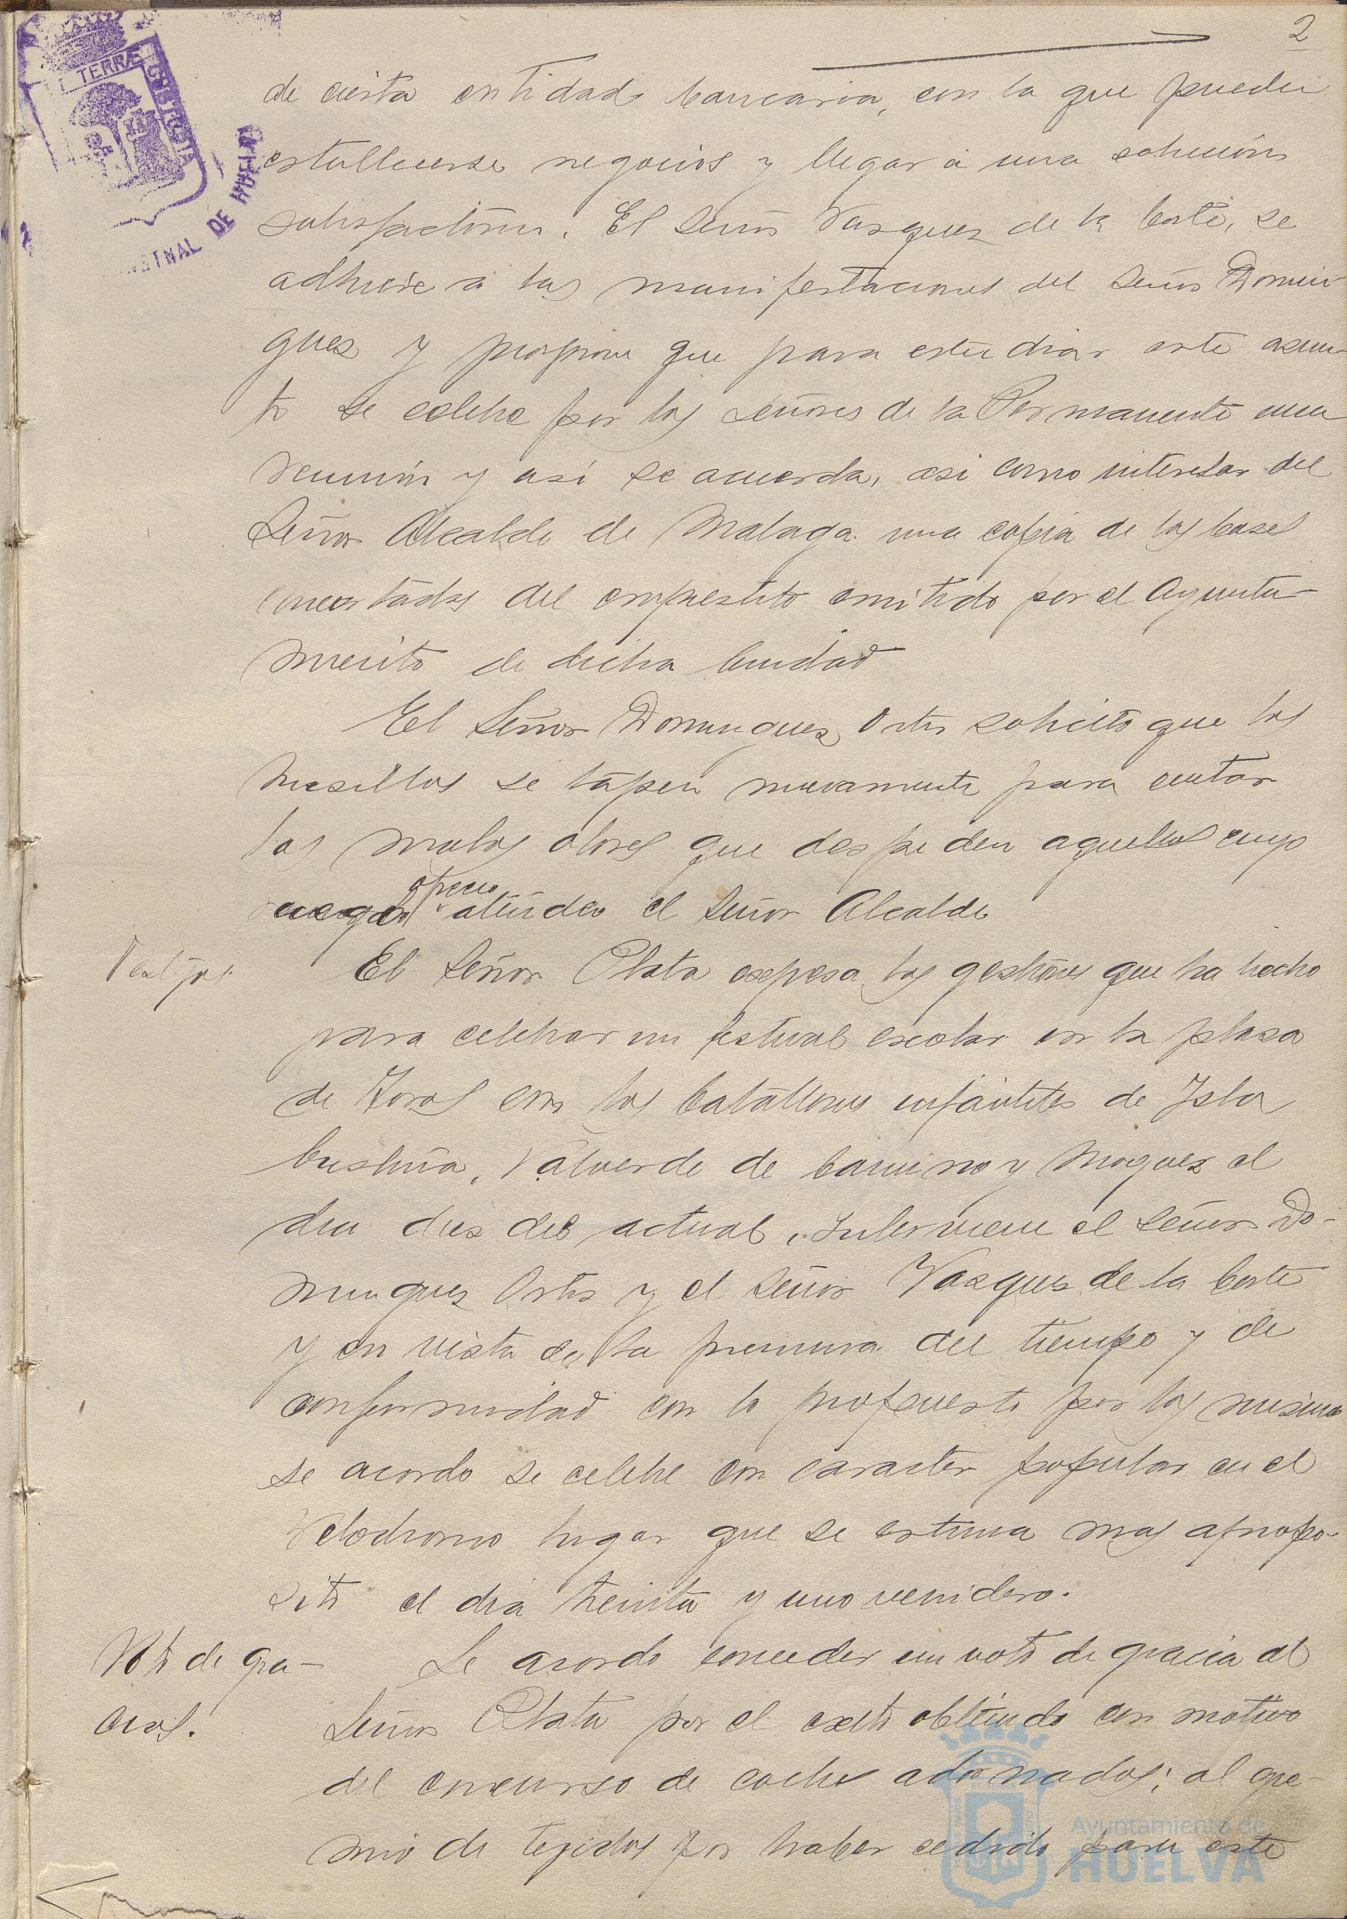 2
de cierta entidad bancaria, con la que pueden
establecerse negocios y llegar á una solución
satisfactoria. El Señor Vazquez de la Corte, se
adhiere á las manifestaciones del Señor Domin-
guez y propone que para estudiar este asun-
to se celebre por los Señores de la Permanente una
reunión y así se acuerda, asi como interesar del
Señor Alcalde de Malaga una copia de las bases
concertadas del emprestito emitido por el Ayunta-
miento de dicha Ciudad
El Señor Dominguez Ortiz solicito que los
husillos se tapen nuevamente para evitar
los malos olores que despiden aquellos cuyo
ruego ofrecio atender el Señor Alcalde
Festejos.
El Señor Plata expresa las gestiones que ha hecho
para celebrar un festival escolar en la plaza
de Toros con los batallones infantiles de Isla
Cristina, Valverde del Camino y Moguer el
dia dies del actual, interviene el Señor Do-
minguez Ortiz y el Señor Vazquez de la Corte
y en vista de la premura del tiempo y de
conformidad con lo propuesto por los mismos
se acordo se celebre con caracter popular en el
Velodromo lugar que se estima mas apropo-
sito el dia treinta y uno venidero.
Voto de gra-
cias.
Se acordo conceder un voto de gracia al
Señor Plata por el exito obtenido con motivo
del concurso de coches adornados; al gre-
mio de tejidos por haber cedido para este
TERRÆ
CUSTODIA
DE HUELVA
Ayuntamiento de
HUELVA